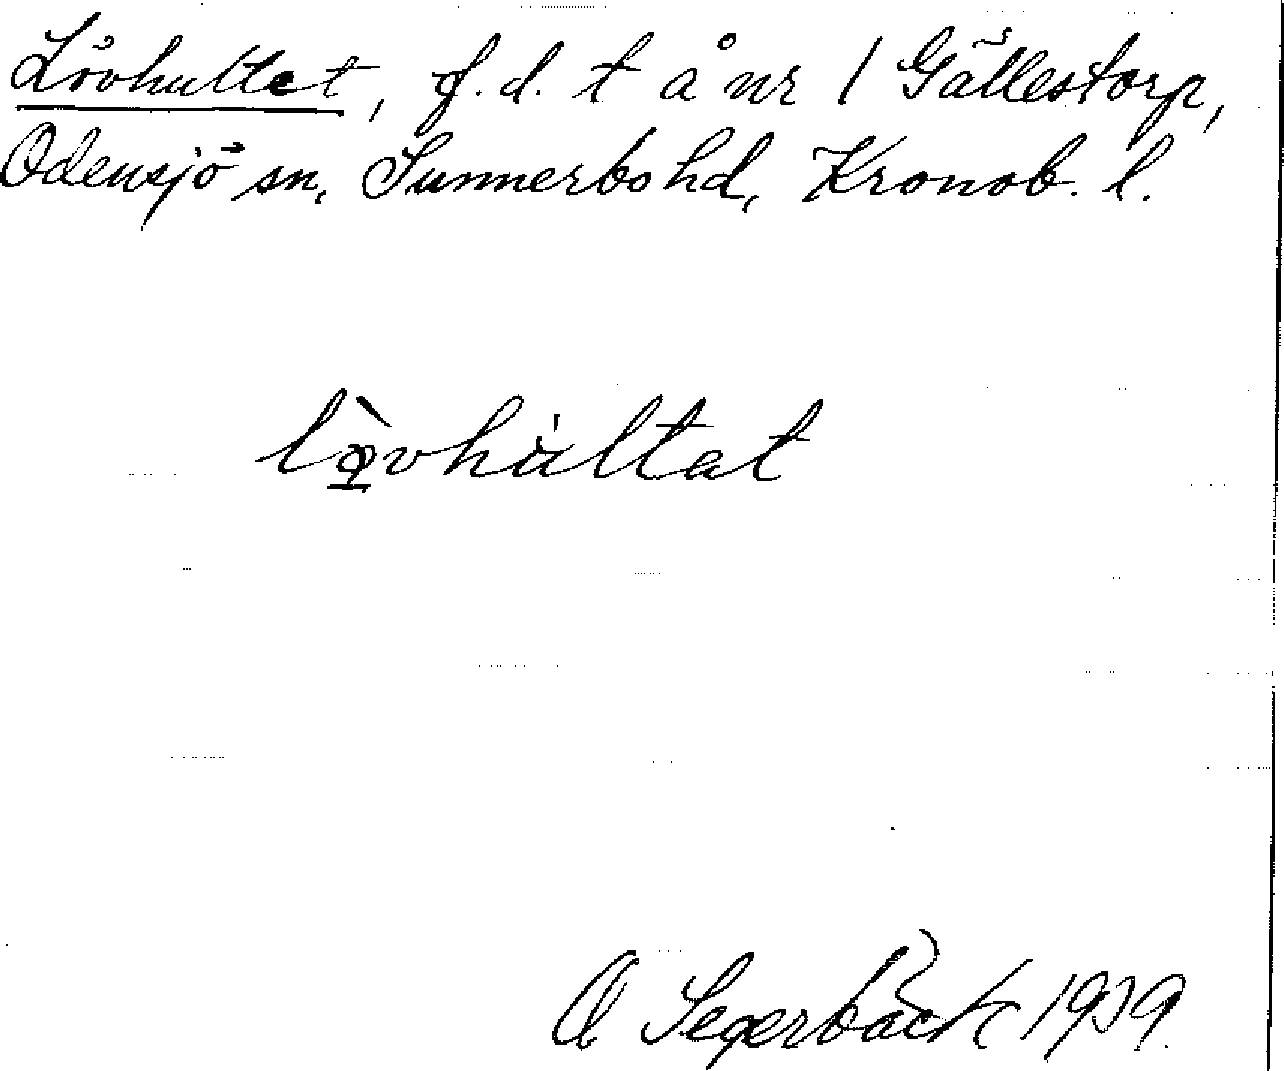 Lövhultet, f.d. t å nr 1 Gällestorp,
Odensjö sn, Sunnerbo hd, Kronob. l.
lö̀vhu̍ltat
O Segerbäck 1939.